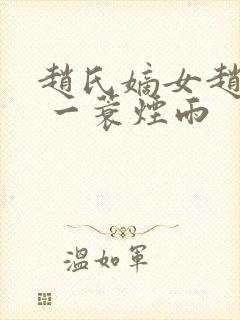 趙氏嫡女趙
一蓑煙雨
溫如軍